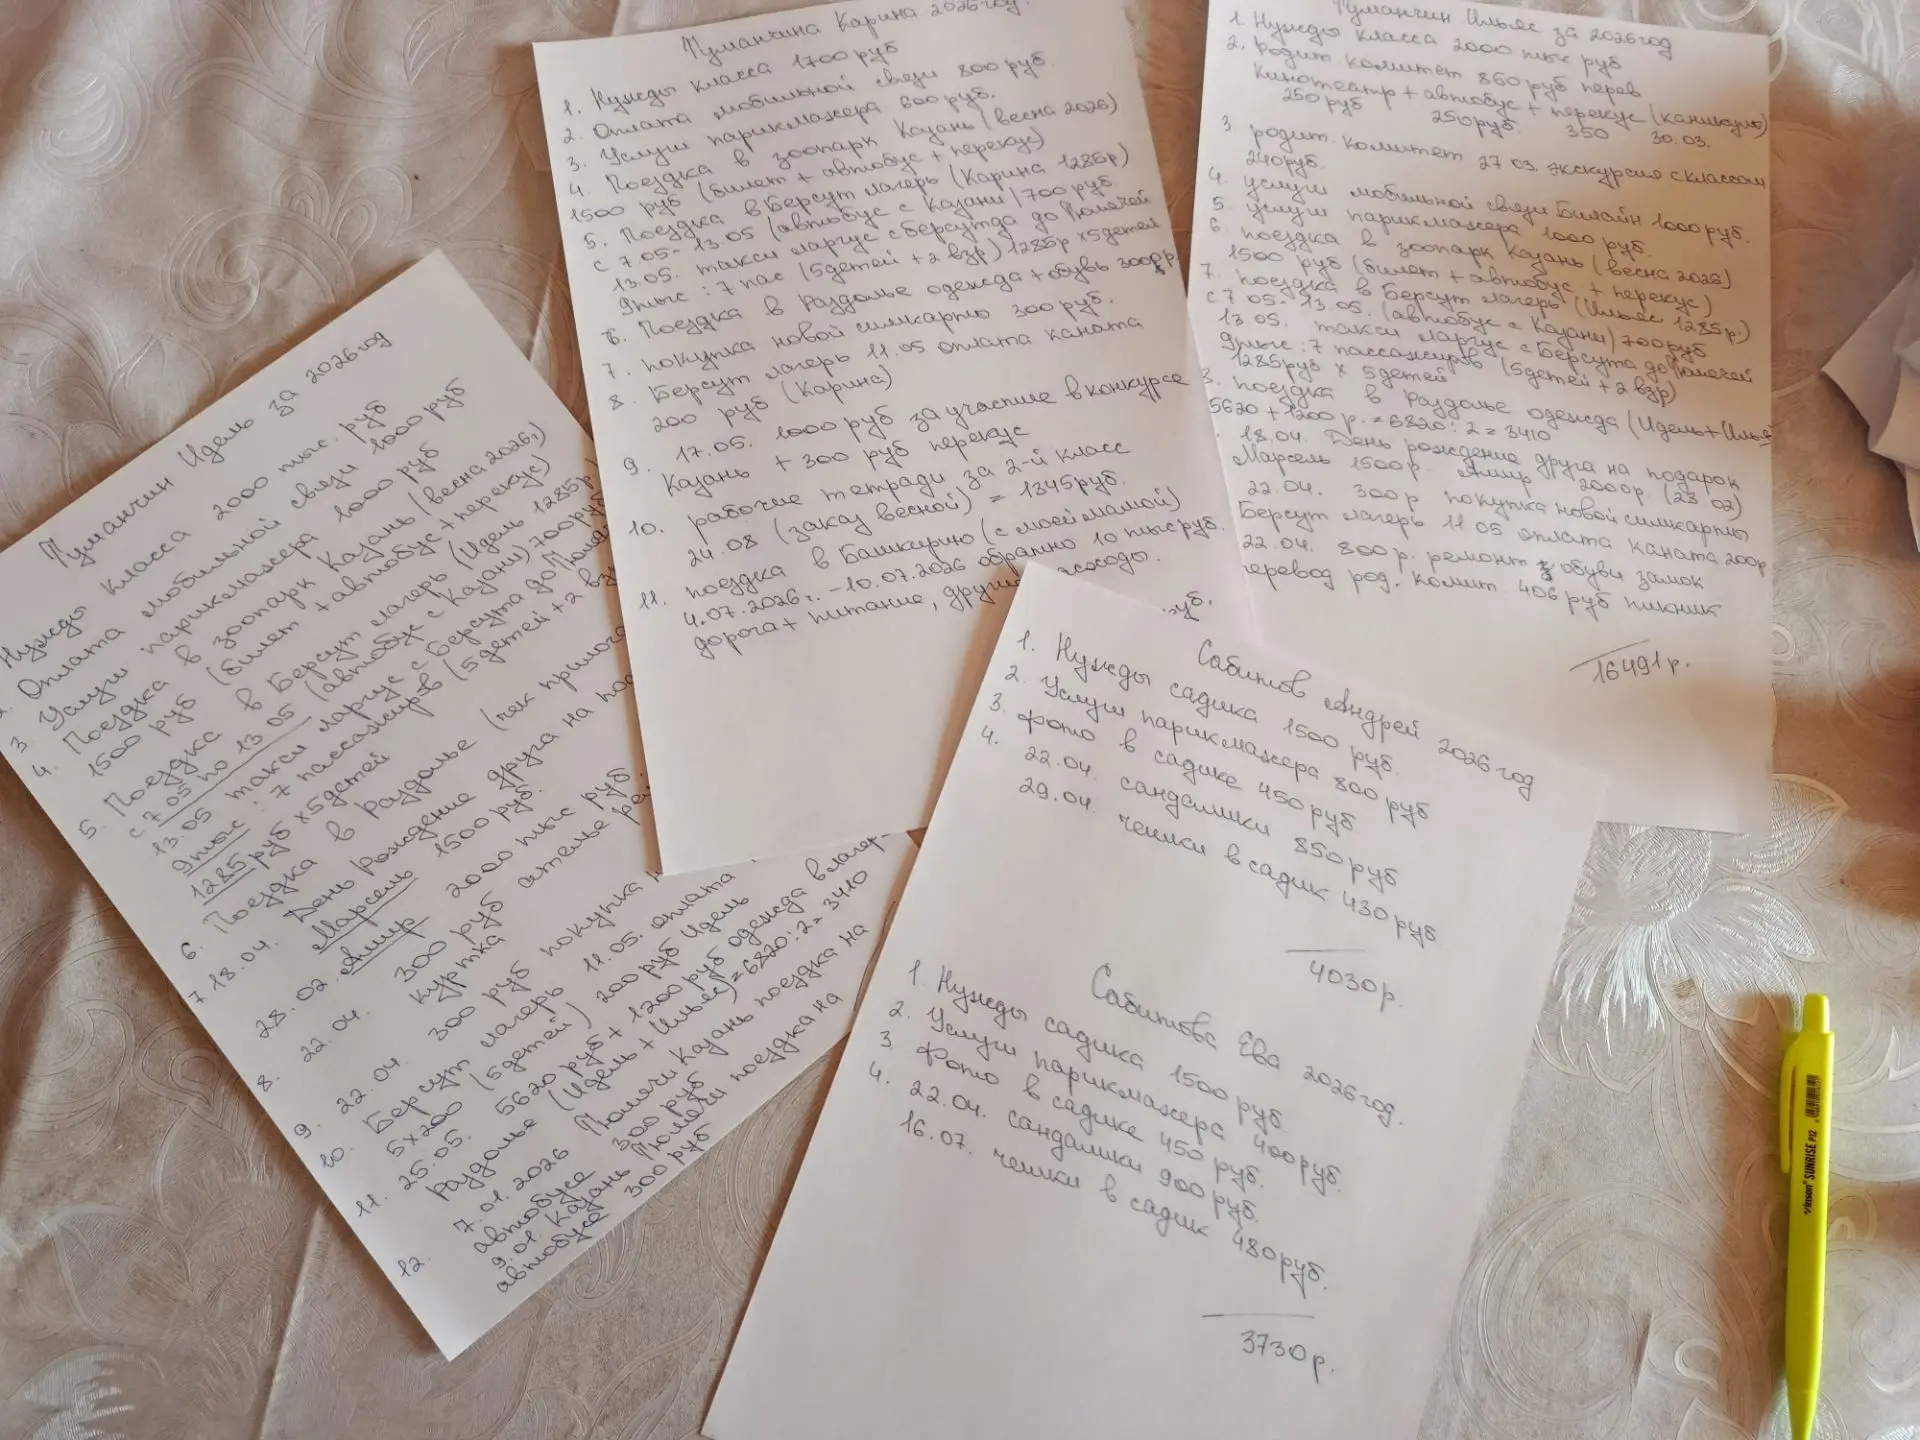 Туманчин Идель за 2026год
Нужды класса 2000 тыс. руб
2. Оплата мобильной связи 1000 руб
3. Услуги парикмахера 1000 руб
4. Поездка в зоопарк Казань (весна 2026,)
1500 руб (билет + автобус + перекус)
5. Поездка в Берсут лагерь (Идель 1285р)
с 7 05 по 13 05 (автобус с Казани) 700руб
13.05 такси ларгус с Берсута до
9тыс : 7 пассажиров (5детей + 2 взр
1285руб х 5детей
6. Поездка в Раздолье (чек
7 18.04. День рождение друга на
Марсель 1500 руб.
28. 02. Амир 2000 тыс руб
8. 22.04. 300 руб ателье
куртка
9. 22.04 300 руб покупка
10. Берсут лагерь 11.05. оплата
5х200 (5детей) 200 руб Идель
11. 25.05. 5620 руб + 1200 руб одежда в лагер-
Раздолье (Идель + Ильяс) = 6820:2= 3410
12. 7.01.2026 Тюлячи Казань поездка на
автобусе 300 руб
9.01. Казань Тюлячи поездка на
автобусе 300 руб
Туманчина Карина 2026год.
1. Нужды класса 1700 руб
2. Оплата мобильной связи 800 руб.
3. Услуги парикмахера 600 руб.
4. Поездка в зоопарк Казань (весна 2026)
1500 руб (билет + автобус + перекус)
5. Поездка в Берсут лагерь (Карина 1285р)
с 7.05- 13.05 (автобус с Казани) 700 руб
13.05. такси ларгус с Берсута до Тюлячей
9тыс : 7 пас (5детей + 2 взр) 1285р х5детей
6. Поездка в Раздолье одежда + обувь 3000р.
7. покупка новой симкарты 300 руб.
8. Берсут лагерь 11.05 оплата каната
200 руб (Карина)
9. 17.05. 1000 руб за участие в конкурсе
Казань + 300 руб перекус
10. рабочие тетради за 2-й класс
24.08 (заказ весной) = 1345руб.
11. поездка в Башкирию (с моей мамой)
4.07.2026г. - 10.07.2026 обратно 10 тыс руб.
дорога + питание, другие расходы.
Туманчин Ильяс за 2026год
1. Нужды класса 2000 тыс руб
2. Родит. комитет 860 руб перев
кинотеатр + автобус + перекус (каникулы)
250руб 250руб. 350 30.03.
3. родит. комитет 27 03. экскурсия с классом
240руб.
4. услуги мобильной связи Билайн 1000руб.
5. услуги парикмахера 1000 руб.
6 поездка в зоопарк Казань (весна 2026)
1500 руб (билет + автобус + перекус)
7. поездка в Берсут лагерь (Ильяс 1285р.)
с 7 05- 13.05. (автобус с Казани) 700руб
13 05. такси ларгус с Берсута до Тюлячей
9тыс : 7 пассажиров (5детей + 2 взр)
1285руб х 5детей
8. поездка в Раздолье одежда (Идель+Ильяс
5620 + 1200 р. = 6820 : 2 = 3410
18.04. День рождение друга на подарок
Марсель 1500р. Амир 2000р (28.02)
22.04. 300р покупка новой симкарты
Берсут лагерь 11 05 оплата каната 200р
22.04. 800р. ремонт обуви замок
перевод род. комит. 406 руб пикник
16491р.
руб.
Сабитов Андрей 2026 год
1. Нужды садика 1500 руб.
2. Услуги парикмахера 800 руб
3. Фото в садике 450 руб
4. 22.04. сандалики 850 руб
29.04. чешки в садик 430 руб
4030р.
Сабитова Ева 2026год.
1. Нужды садика 1500 руб
2. Услуги парикмахера 400руб.
3. Фото в садике 450 руб.
4. 22.04. сандалики 900 руб.
16.07. чешки в садик 480руб.
3730р.
Vinson SUNRISE P12